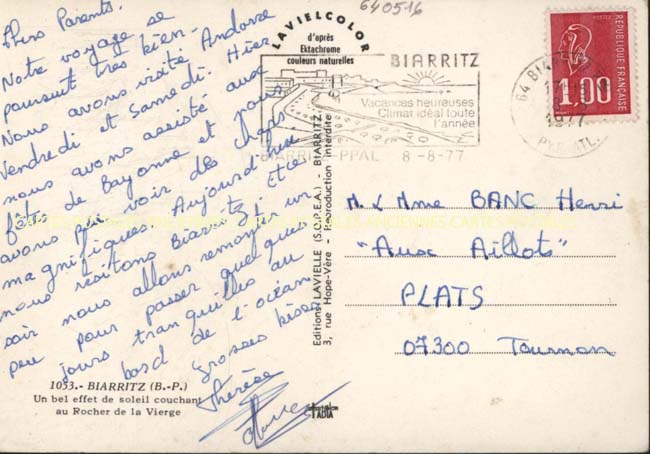 Chers Parents.
Notre voyage se
poursuit très bien.
Nous avons visité Andorre
Vendredi et Samedi. Hier
nous avons assisté aux
fêtes de Bayonne et nous
avons pu voir des chars
magnifiques. Aujourd'hui
nous visitons Biarritz. Et ce
soir nous allons remonter un
peu pour passer quelques
jours tranquilles au
bord de l'océan.
Grosses bises
Thérèse
1053.- BIARRITZ (B.-P.)
Un bel effet de soleil couchant
au Rocher de la Vierge
LAVIELCOLOR
d'après
Ektachrome
couleurs naturelles
Editions LAVIELLE (S.O.P.E.A.) - BIARRITZ
3, rue Hope-Vère - Reproduction interdite
640516
BIARRITZ
Vacances heureuses
Climat idéal toute
l'année
BIARRITZ-PPAL 8-8-77
64 BIARRITZ
1977
REPUBLIQUE FRANÇAISE
1,00
M. & Mme BANC Henri
"Aux Aillots"
PLATS
07300 Tournon